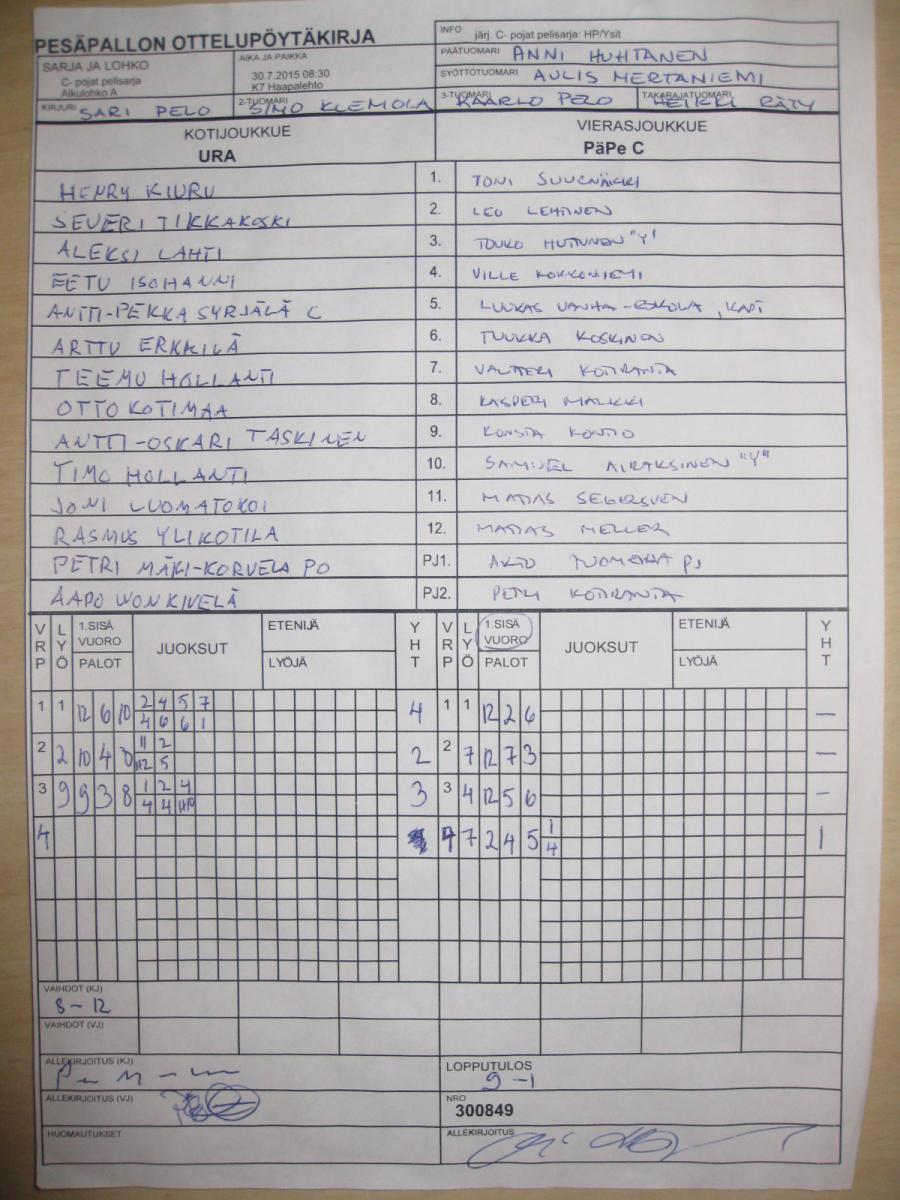 PESÄPALLON OTTELUPÖYTÄKIRJA
INFO järj. C- pojat pelisarja: HP/Ysit
PÄÄTUOMARI ANNI HUHTANEN
SARJA JA LOHKO
C- pojat pelisarja
Alkulohko A
AIKA JA PAIKKA
30.7.2015 08:30
K7 Haapalehto
SYÖTTÖTUOMARI AULIS MERTANIEMI
KIRJURI SARI PELO
2-TUOMARI SIMO KLEMOLA
3-TUOMARI KAARLO PELO
TAKARAJATUOMARI HEIKKI RÄTY
KOTIJOUKKUE
URA
VIERASJOUKKUE
PäPe C
HENRY KIURU 1. TONI
SEVERI TIKKAKOSKI 2. LEO LEHTINEN
ALEKSI LAHTI 3. TOUKO HUTTUNEN "Y"
EETU ISOHANNI 4. VILLE KOKKONIEMI
ANTTI-PEKKA SYRJÄLÄ C 5. LUUKAS VANHA-ESKOLA, KAPT
ARTTU ERKKILÄ 6. TUUKKA KOSKINEN
TEEMU HOLLANTI 7. VALTTERI KOTIRANTA
OTTO KOTIMAA 8. KASPERI MALKKI
ANTTI-OSKARI TASKINEN 9. KONSTA KONTIO
TIMO HOLLANTI 10. SAMUEL AIRAKSINEN "Y"
JONI LUOMATOKOI 11. MATIAS SEGERSVEN
RASMUS YLIKOTILA 12. MATIAS MELLER
PETRI MÄKI-KORVELA PO PJ1. PJ
AAPO PJ2. PETRI KOTIRANTA
VRP LYÖ 1.SISÄ VUORO PALOT JUOKSUT ETENIJÄ LYÖJÄ YHT VRP LYÖ 1.SISÄ VUORO PALOT JUOKSUT ETENIJÄ LYÖJÄ YHT
1 1 12 6 10 2 4 5 7 4 1 1 12 2 6 –
4 6 6 1
2 2 10 4 8 11 2 2 2 7 12 7 3 –
12 5
3 9 9 3 8 1 2 4 3 3 4 12 5 6 –
4 4
4 4 7 2 4 5 1 1
4
VAIHDOT (KJ)
8-12
VAIHDOT (VJ)
ALLEKIRJOITUS (KJ)
LOPPUTULOS
9-1
ALLEKIRJOITUS (VJ)
NRO
300849
HUOMAUTUKSET
ALLEKIRJOITUS